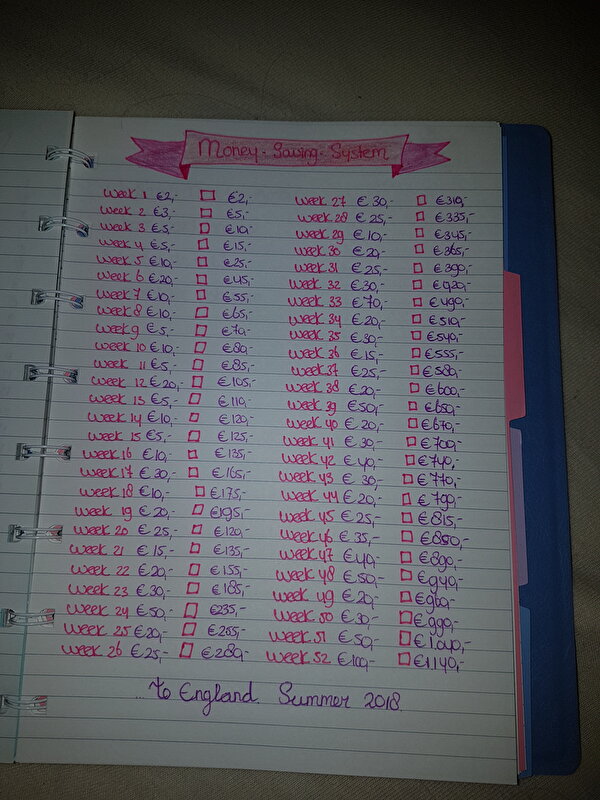 Money • Saving • System
Week 1 €2,- €2,-
Week 2 €3,- €5,-
Week 3 €5,- €10,-
Week 4 €5,- €15,-
Week 5 €10,- €25,-
Week 6 €20,- €45,-
Week 7 €10,- €55,-
Week 8 €10,- €65,-
Week 9 €5,- €70,-
Week 10 €10,- €80,-
Week 11 €5,- €85,-
Week 12 €20,- €105,-
Week 13 €5,- €110,-
Week 14 €10,- €120,-
Week 15 €5,- €125,-
Week 16 €10,- €135,-
Week 17 €30,- €165,-
Week 18 €10,- €175,-
Week 19 €20,- €195,-
Week 20 €25,- €120,-
Week 21 €15,- €135,-
Week 22 €20,- €155,-
Week 23 €30,- €185,-
Week 24 €50,- €235,-
Week 25 €20,- €255,-
Week 26 €25,- €280,-
Week 27 €30,- €310,-
Week 28 €25,- €335,-
Week 29 €10,- €345,-
Week 30 €20,- €365,-
Week 31 €25,- €390,-
Week 32 €30,- €420,-
Week 33 €70,- €490,-
Week 34 €20,- €510,-
Week 35 €30,- €540,-
Week 36 €15,- €555,-
Week 37 €25,- €580,-
Week 38 €20,- €600,-
Week 39 €50,- €650,-
Week 40 €20,- €670,-
Week 41 €30,- €700,-
Week 42 €40,- €740,-
Week 43 €30,- €770,-
Week 44 €20,- €790,-
Week 45 €25,- €815,-
Week 46 €35,- €850,-
Week 47 €40,- €890,-
Week 48 €50,- €940,-
Week 49 €20,- €960,-
Week 50 €30,- €990,-
Week 51 €50,- €1.040,-
Week 52 €100,- €1.140,-
...to England. Summer 2018.